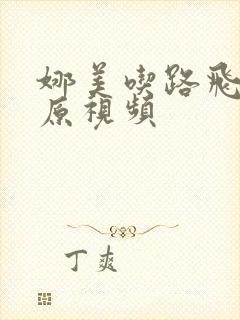 娜美喫路飛
原視頻
丁爽